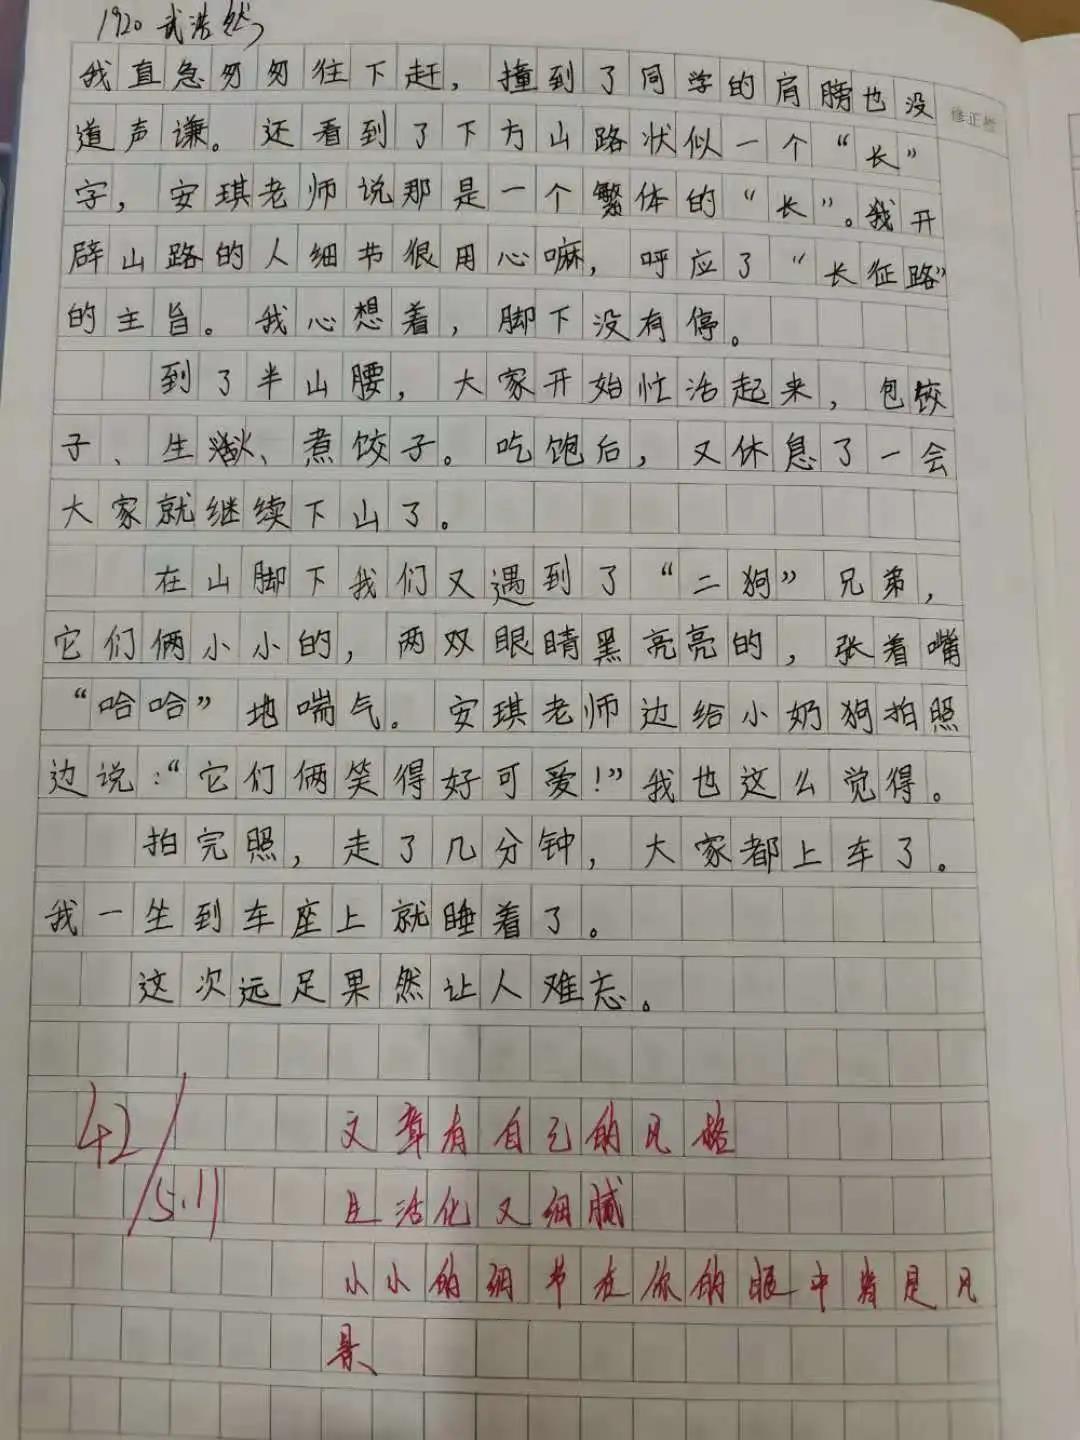 1920 武浩然
我直急匆匆往下赶，撞到了同学的肩膀也没
修正栏
道声谦。还看到了下方山路状似一个“长”
字，安琪老师说那是一个繁体的“长”。我开
辟山路的人细节很用心嘛，呼应了“长征路”
的主旨。我心想着，脚下没有停。
到了半山腰，大家开始忙活起来，包饺
子、生火、煮饺子。吃饱后，又休息了一会
大家就继续下山了。
在山脚下我们又遇到了“二狗”兄弟，
它们俩小小的，两双眼睛黑亮亮的，张着嘴
“哈哈”地喘气。安琪老师边给小奶狗拍照
边说：“它们俩笑得好可爱！”我也这么觉得。
拍完照，走了几分钟，大家都上车了。
我一坐到车座上就睡着了。
这次远足果然让人难忘。
42/5.11
文章有自己的风格
生活化又细腻
小小的细节在你的眼中皆是风
景